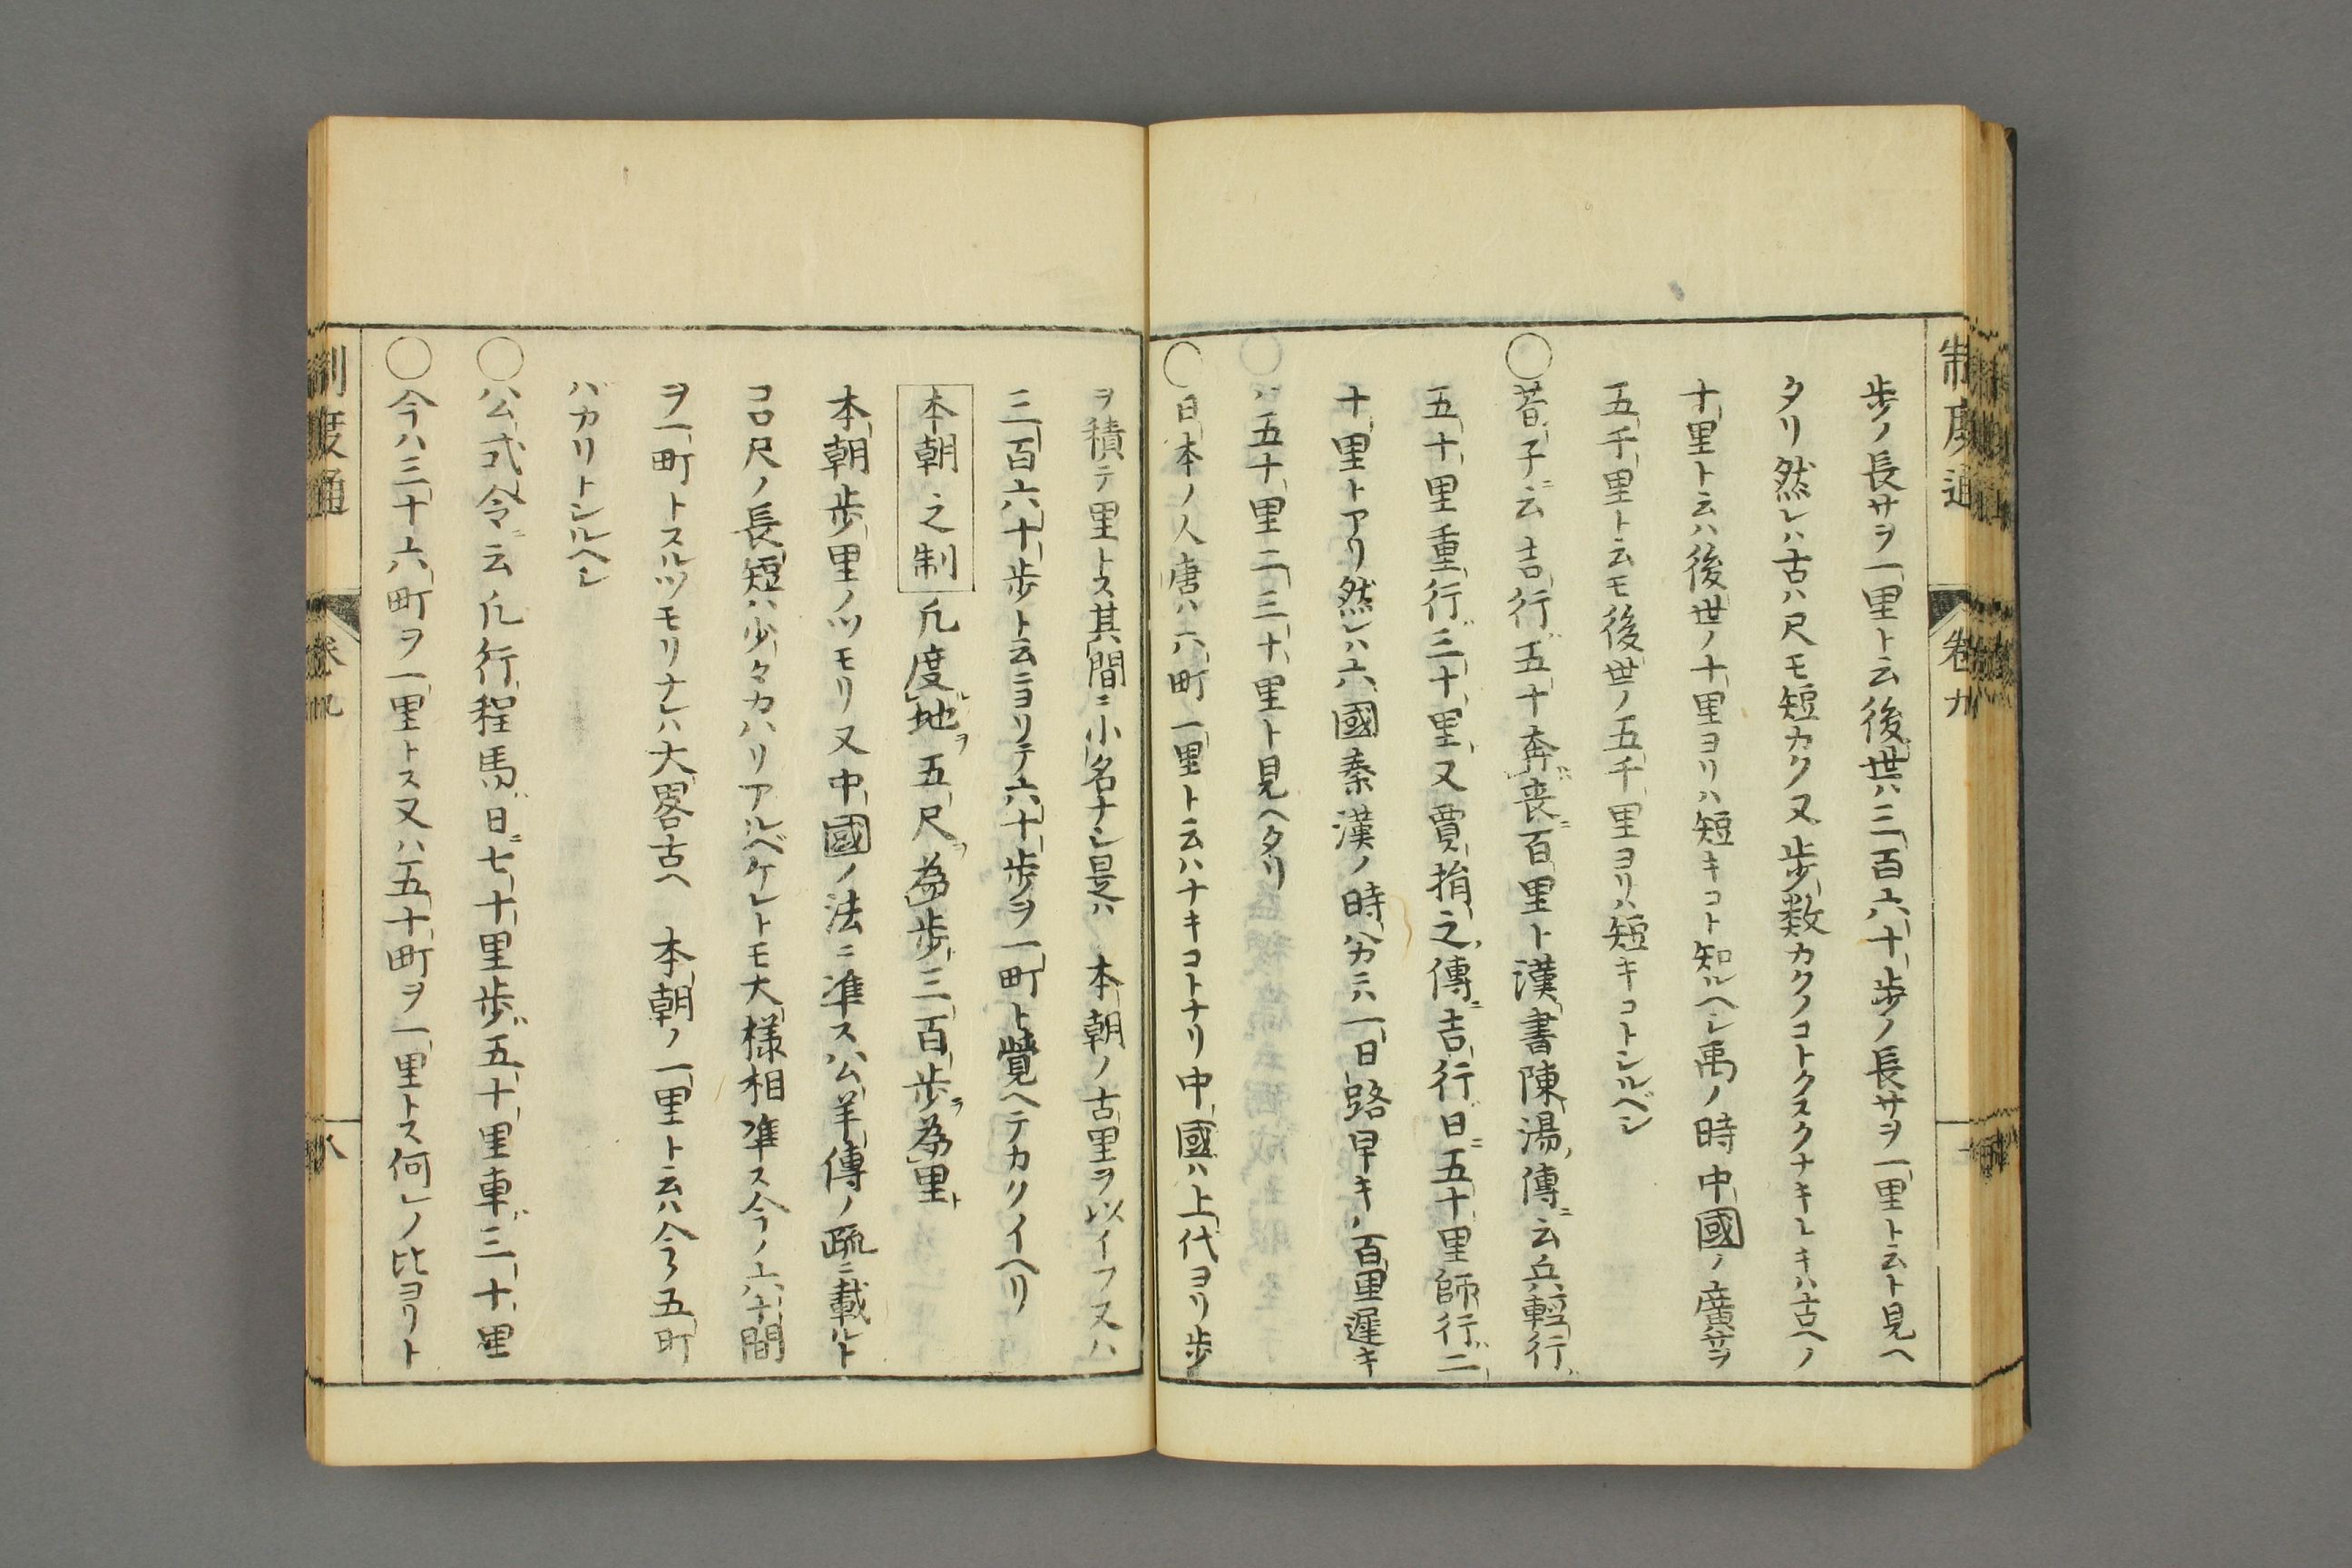 制度通 卷九
歩ノ長サヲ一里ト云後世ハ三百六十歩ノ長サヲ一里ト云ト見ヘ
タリ然レハ古ハ尺モ短カク又歩数カクノコトクスクナキトキハ古ヘノ
十里ト云ハ後世ノ十里ヨリハ短キコト知ルヘシ禹ノ時中國ノ廣サヲ
五千里ト云モ後世ノ五千里ヨリハ短キコトシルベシ
○荀子ニ云吉行ハ五十奔喪ニハ百里ト漢書陳湯傳ニ云兵輕行
五十里重行三十里又賈捐之傳ニ吉行日ニ五十里師行ハ二
十里トアリ然レハ六國秦漢ノ時ハカミハ一日路早キハ百里遲キ
ハ五十里二三十里ト見ヘタリ
○日本ノ人唐ハ六町一里ト云ハナキコトナリ中國ハ上代ヨリ歩
ヲ積テ里トス其間ニ小名ナシ是ハ 本朝ノ古里ヲ以イフ又ハ
三百六十歩ト云ニヨリテ六十歩ヲ一町ト覺ヘテカクイヘリ
本朝之制 凡度地ヲ五尺ヲ為歩三百歩ヲ為里ト
本朝歩里ノツモリ又中國ノ法ニ準ス公羊傳ノ疏ニ載ルト
コロ尺ノ長短ハ少々カハリアルベケレトモ大様相準ス今ノ六十間
ヲ一町トスルツモリナレハ大畧古ヘ 本朝ノ一里ト云ハ今ノ五町
バカリトシルヘシ
○公式令ニ云凡行程馬ハ日ニ七十里歩ハ五十里車ハ三十里
○今ハ三十六町ヲ一里トス又ハ五十町ヲ一里トス何レノ比ヨリト
制度通 卷九 八